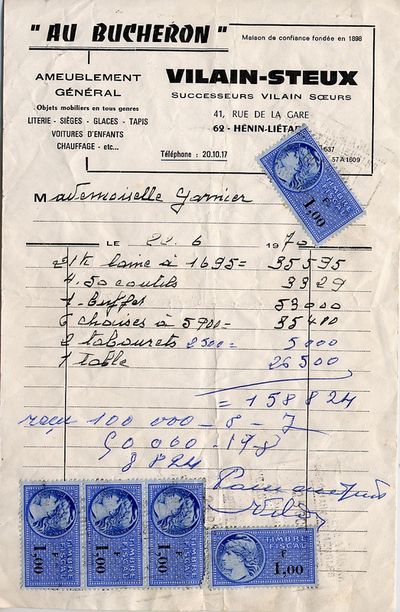 "AU BUCHERON"
Maison de confiance fondée en 1898
AMEUBLEMENT
GÉNÉRAL
Objets mobiliers en tous genres
LITERIE - SIÈGES - GLACES - TAPIS
VOITURES D'ENFANTS
CHAUFFAGE - etc...
VILAIN-STEUX
SUCCESSEURS VILAIN SŒURS
41, RUE DE LA GARE
62 - HÉNIN-LIÉTAR
637
Téléphone : 20.10.17
57A1609
Mademoiselle Garnier
LE 22.6 1970
21 K laine à 1695 = 35595
4.50 coutils 3329
1 buffet 53000
6 chaises à 5900 = 35400
2 tabourets 2500 = 5000
1 table 26500
= 158824
reçu 100 000 - 8 - 7
50 000 - 19/8
8824
Pour acquit
TIMBRE FISCAL
F
1,00
F
1,00
F
1,00
F
1,00
TIMBRE
FISCAL
F
1,00